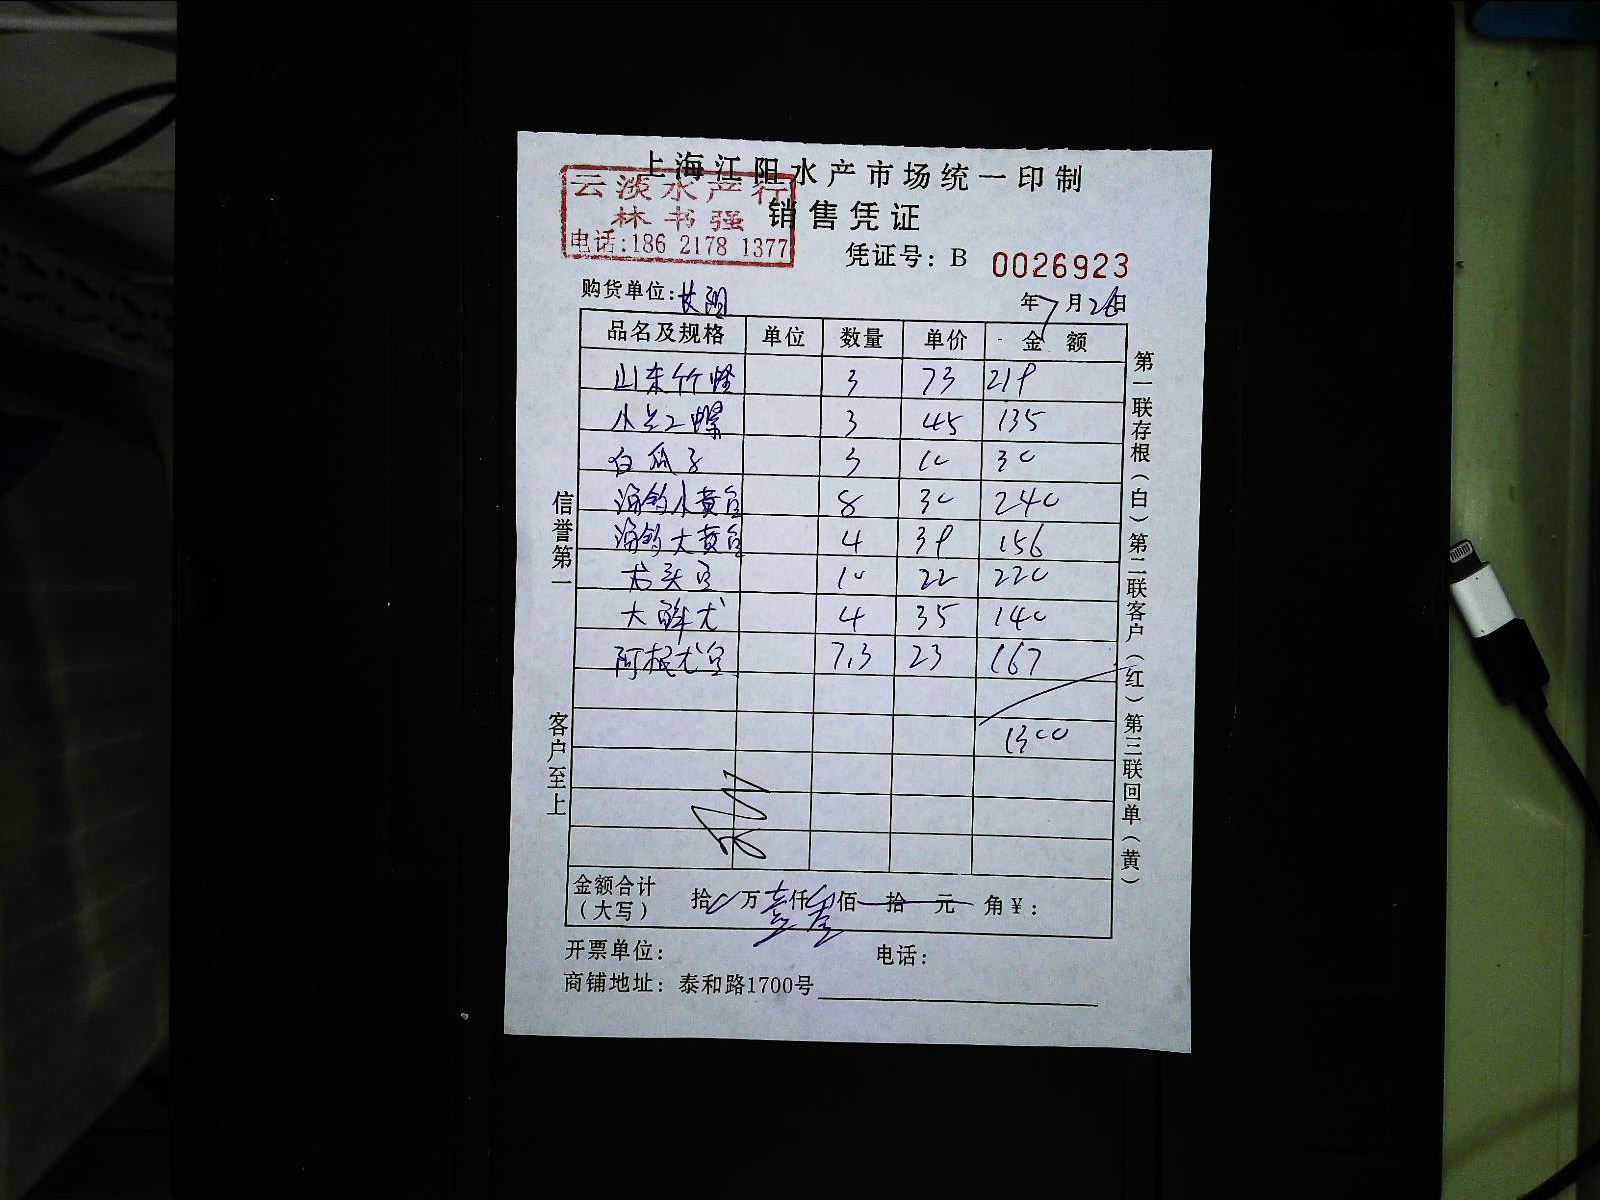 上海江阳水产市场统一印制
云淡水产行
林书强
电话:186 2178 1377
销售凭证
凭证号: B 0026923
购货单位:
年7月26日
品名及规格 单位 数量 单价 金额
山东竹蛏 3 73 219
小红螺 3 45 135
白瓜子 3 10 30
海钓小黄鱼 8 30 240
海钓大黄鱼 4 39 156
龙头鱼 10 22 220
大鲜尤 4 35 140
阿根尤鱼 7.3 23 167
1300
金额合计
(大写) 拾0万壹仟叁佰 拾 元 角¥:
开票单位: 电话:
商铺地址: 泰和路1700号
信誉第一
客户至上
第一联存根(白)第二联客户(红)第三联回单(黄)